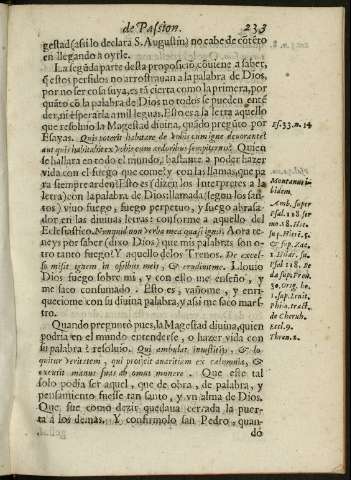 de Passion. 233
gestad (assi lo declara S. Augustin) no cabe de cōtēto
en llegando a oyrle.
La segūda parte desta proposiciō, cōuiene a saber,
q̄ estos perfidos no arrostrauan a la palabra de Dios,
por no ser cosa suya, es tā cierta como la primera, por
quāto cō la palabra de Dios no todos se pueden entē
der, ni esperarla a mil leguas. Esto era la letra aquello
que resoluio la Magestad diuina, quādo pregūto por
Esayas. Quis poterit habitare de vobis cum igne deuorante?
aut quis habitabit ex vobis cum ardoribus sempiternis? Quien
se hallara en todo el mundo, bastante a poder hazer
vida con el fuego que come? y con las llamas, que pa
ra siempre arden? Esto es (dizen los Interpretes a la
letra) con la palabra de Dios: llamada (segun los san-
tos) viuo fuego, fuego perpetuo, y fuego abrasa-
dor en las diuinas letras: conforme a aquello del
Ecclesiastico. Nunquid non verba mea quasi ignis? Aora te-
neys por saber (dixo Dios) que mis palabras son o-
tro tanto fuego? Y aquello de los Trenos. De excel-
so misit ignem in ossibus meis, & erudiuit me. Llouio
Dios fuego sobre mi, y con ello me enseño, y
me saco consumado. Esto es, vañome, y enri-
queciome con su diuina palabra, y assi me saco maes-
tro.
Quando preguntò pues, la Magestad diuina, quien
podria en el mundo entenderse, o hazer vida con
su palabra? resoluio. Qui ambulat in iustitijs, & lo-
quitur veritatem, qui proijcit auaritiam ex calumnia, &
excutit manus suas ab omni munere. Que este tal
solo podia ser aquel, que de obra, de palabra, y
pensamiento fuesse tan santo, y vn alma de Dios.
Que fue como dezir quedaua cerrada la puer-
ta a los demas. Y confirmolo san Pedro, quan-
do
Esf. 33. n. 14
Montanus i-
bidem.
Amb. super
Psal. 118. ser
mo. 18. Hie.
sup. Hier. 5.
& sup. Zac.
2. Hilar. su.
Psal. 118. Be
da sup. Prob.
30. orig. ho.
Phil. a tract.
de Cherub.
Eccl. 9.
Thren. 1.